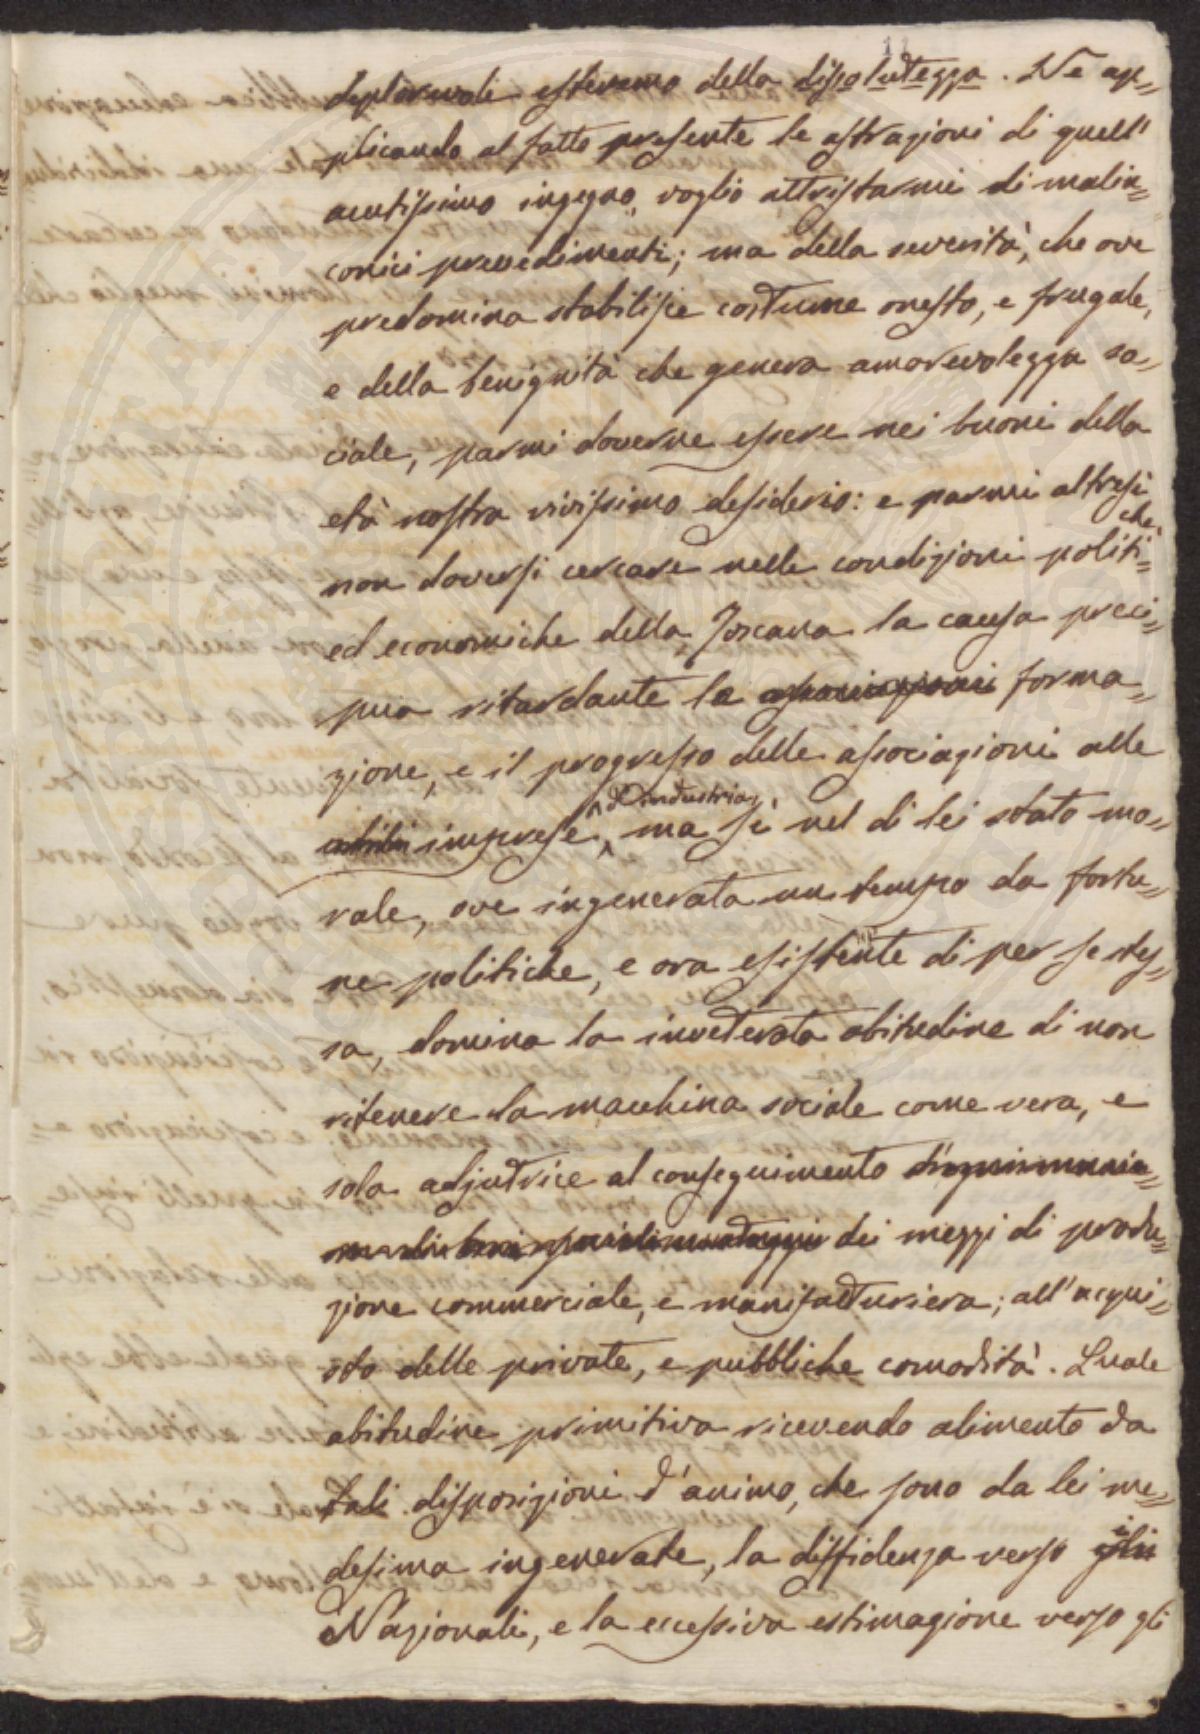 11
deplorevole estremo della dissolutezza. Ne ap=
plicando al fatto presente le astrazioni di quell'
acutissimo ingegno, voglio attristarmi di malin=
conici prevedimenti; ma della severità, che ove
predomina stabilisce costume onesto, e frugale,
e della benignità che genera amorevolezza so=
ciale, parmi doverne essere nei buoni della
età nostra vivissimo desiderio: e parmi altresì
non doversi cercare nelle condizioni politi=che,
ed economiche della Toscana la causa preci=
pua ritardante la forma=
zione, e il progresso delle associazioni alle
imprese d'industria, ma sì nel di lei stato mo=
rale, ove ingenerata un tempo da fortu=
ne politiche, e ora esistente di per se stes=
sa, domina la inveterata abitudine di non
ritenere la macchina sociale come vera, e
sola adjutrice al conseguimento
dei mezzi di produ=
zione commerciale, e manifatturiera; all'acqui=
sto delle private, e pubbliche comodità. Quale
abitudine primitiva ricevendo alimento da
tali disposizioni d'animo, che sono da lei me=
desima ingenerate, la diffidenza verso i
Nazionali, e la eccessiva estimazione verso gli